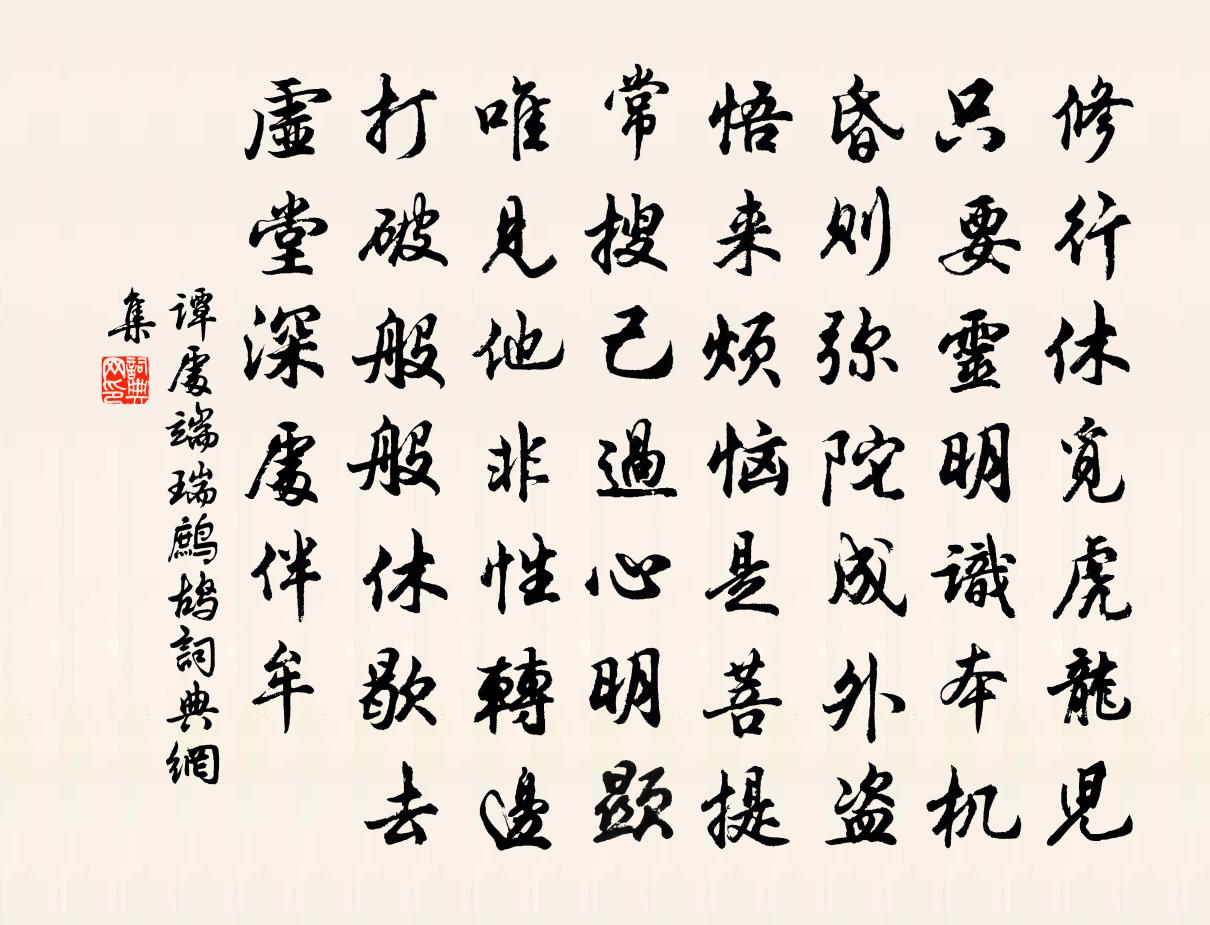 修行休觅虎龍児
只要靈明識本机
昏则弥陀成外盗
悟来烦恼是菩提
常搜己過心明顕
唯見他非性轉邊
打破般般休歇去
虛堂深處伴牟
谭處端瑞鹧鸪詞典網
集
詞典
网印